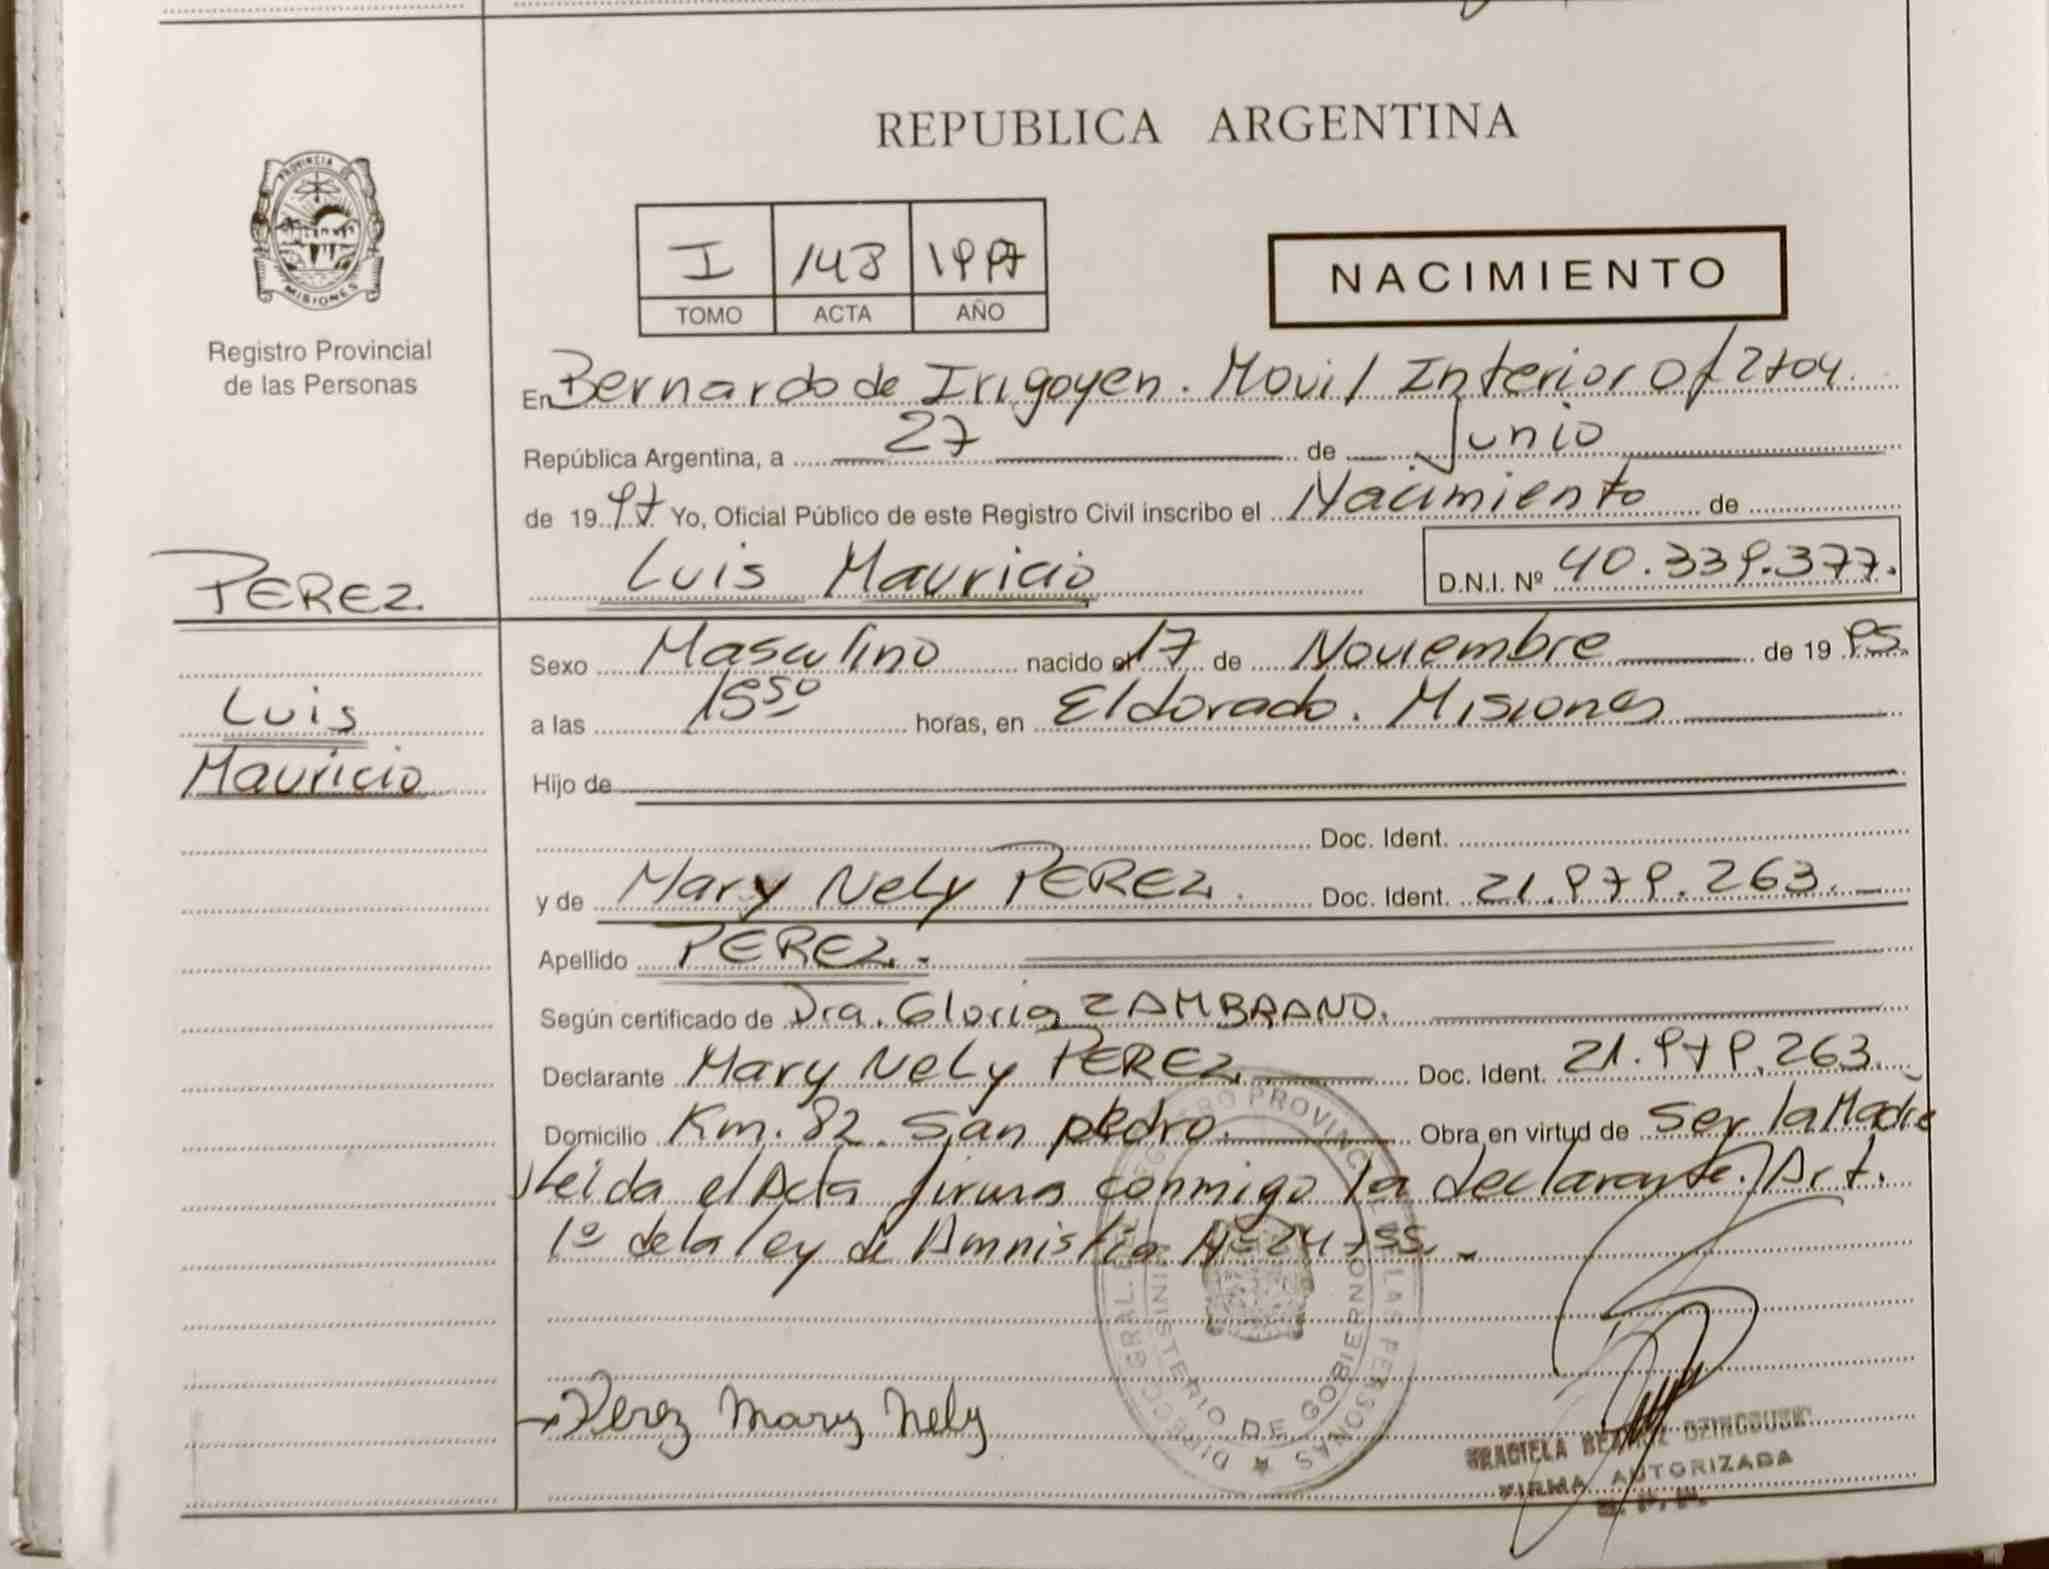 REPUBLICA ARGENTINA
PROVINCIA DE
MISIONES
Registro Provincial
de las Personas
I 148 1997
TOMO ACTA AÑO
NACIMIENTO
En Bernardo de Irigoyen. Movil Interior Of 2704.
República Argentina, a 27 de Junio
de 1997 Yo, Oficial Público de este Registro Civil inscribo el Nacimiento de
PEREZ
Luis Mauricio D.N.I. Nº 40.339.377.
Luis
Mauricio
Sexo Masculino nacido el 17 de Noviembre de 1995
a las 15 50 horas, en Eldorado. Misiones
Hijo de
Doc. Ident.
y de Mary Nely PEREZ. Doc. Ident. 21.979.263.
Apellido PEREZ.
Según certificado de Dra. Gloria ZAMBRANO.
Declarante Mary Nely PEREZ Doc. Ident. 21.979.263.
Domicilio Km. 82. San pedro. Obra en virtud de Ser la Madre
Leida el Acta firma conmigo la declarante. Art.
1º de la ley de Amnistia Nº 24755.
Perez Mary Nely
REGISTRO PROVINCIAL DE LAS PERSONAS
MINISTERIO DE GOBIERNO
GRACIELA BEATRIZ
FIRMA AUTORIZADA